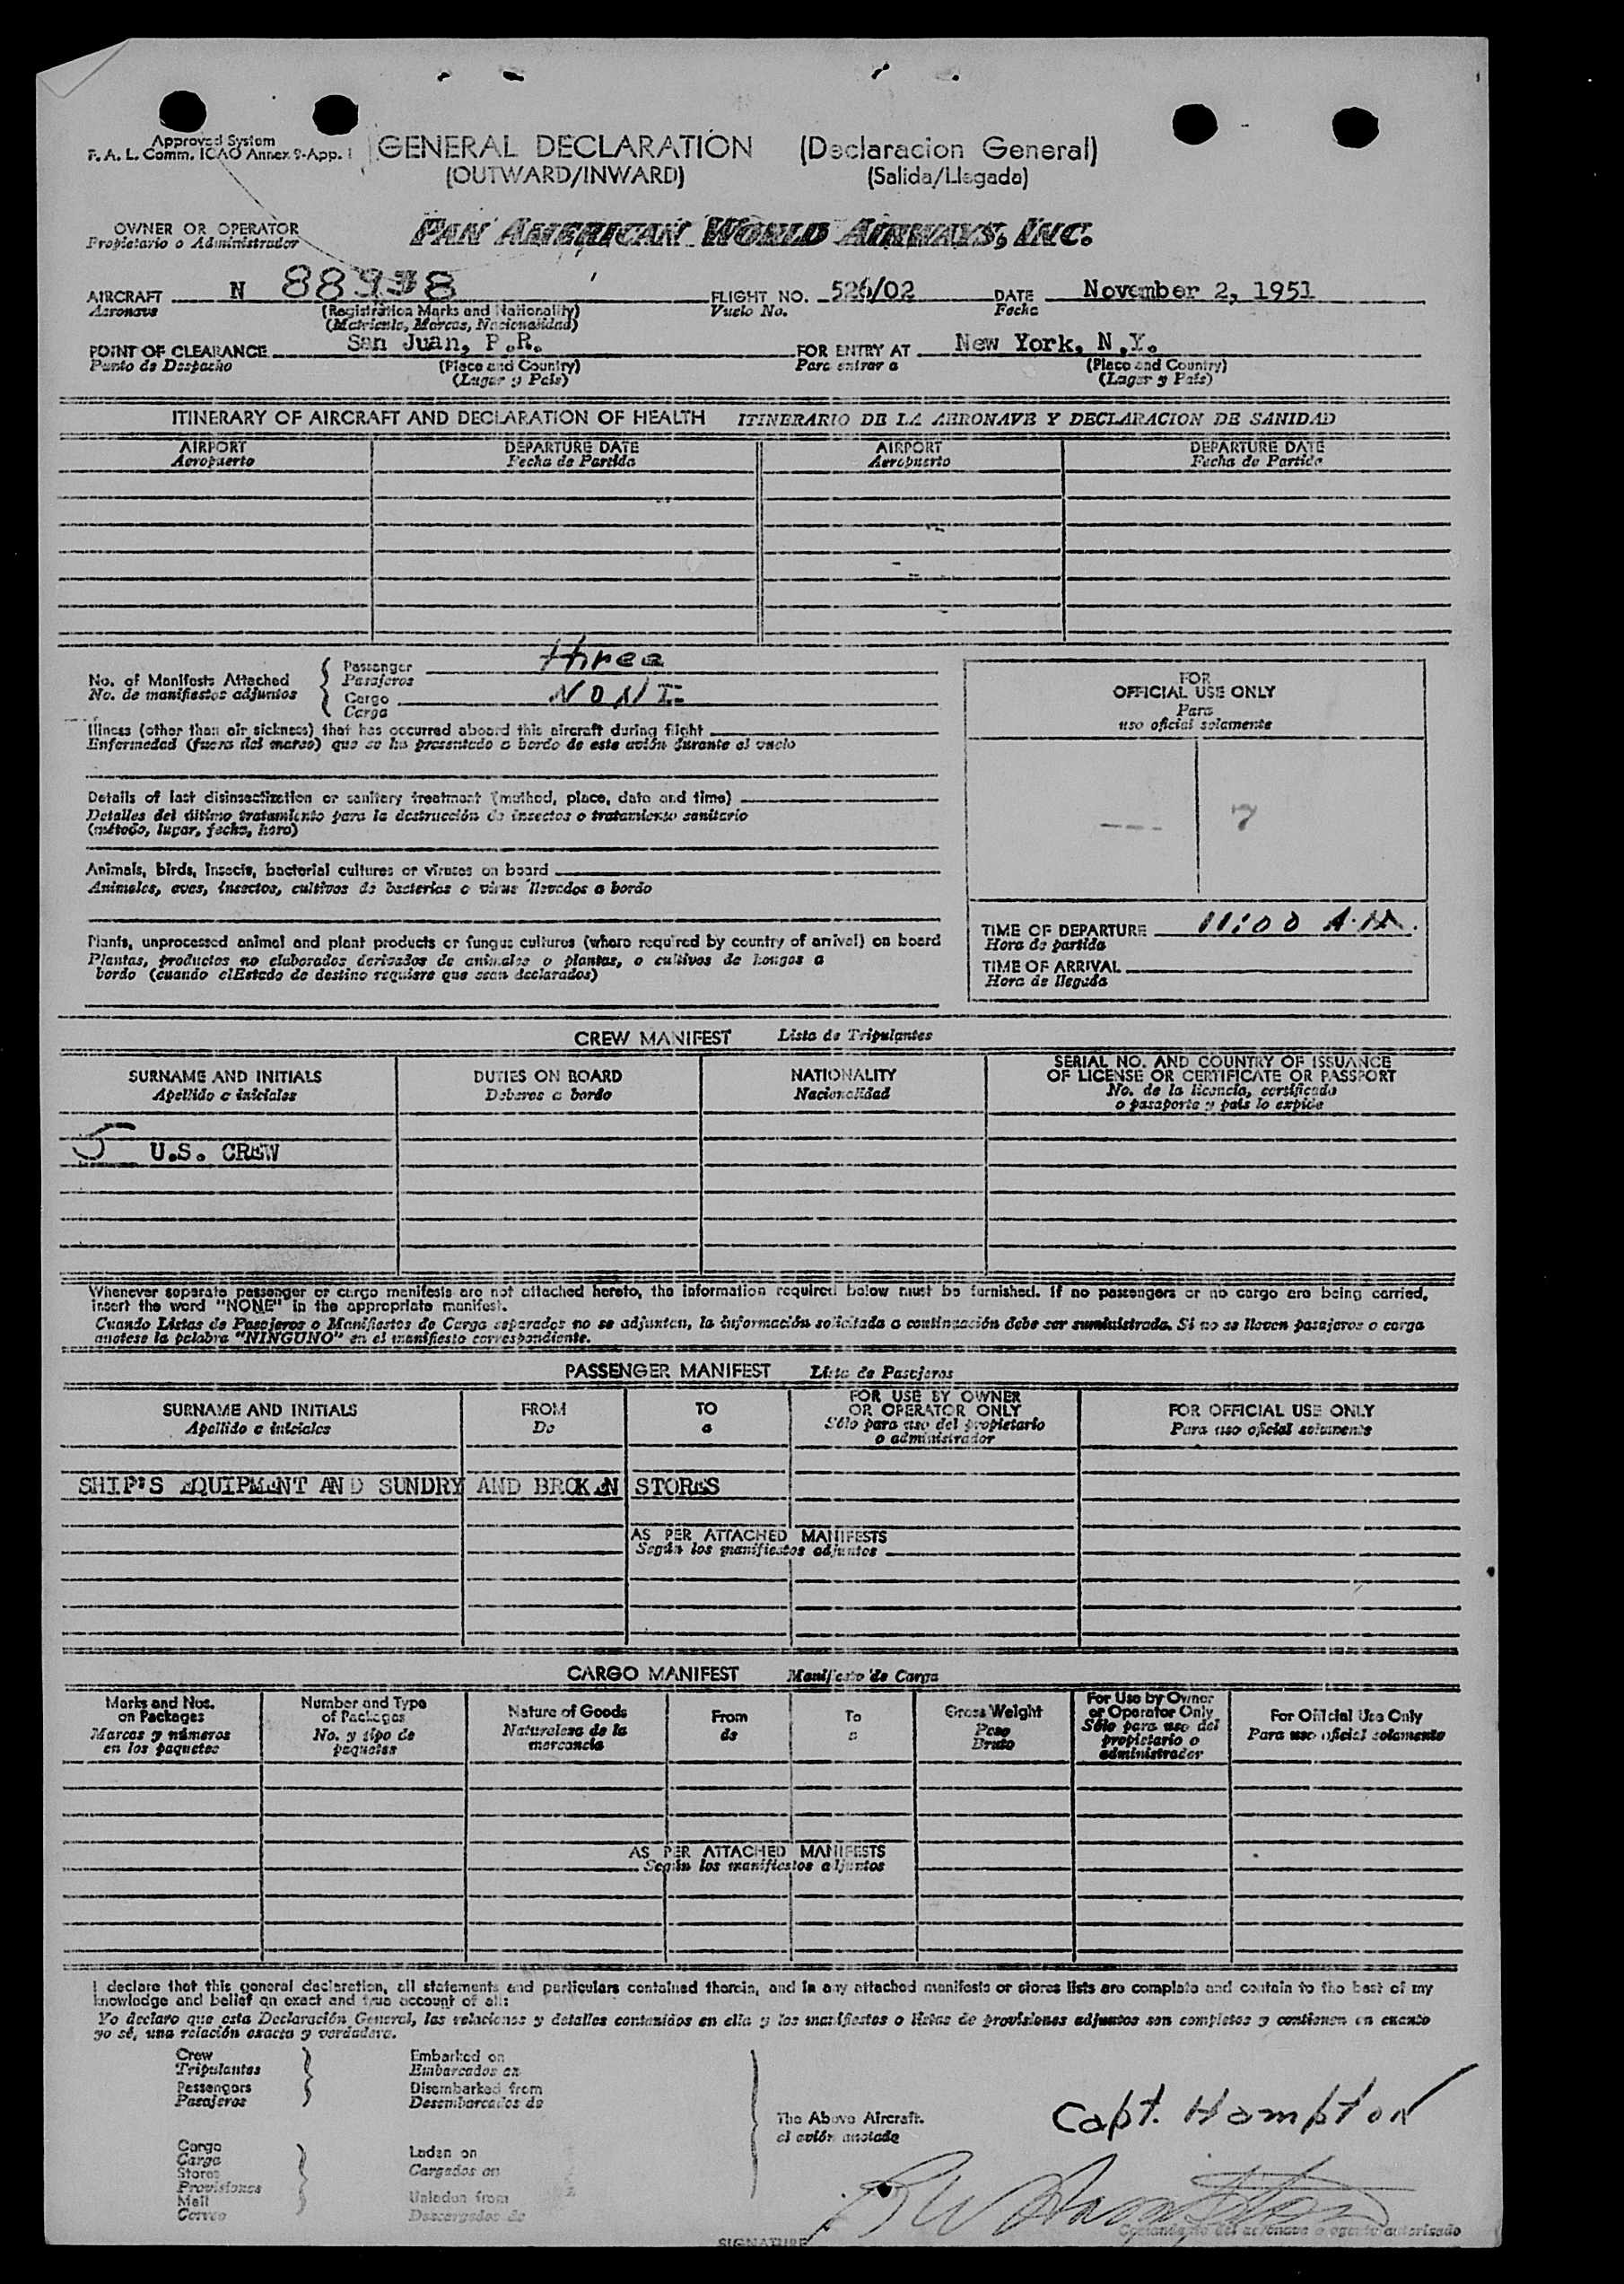 Approved System
F. A. L. Comm. ICAO Annex 9-App. 1
GENERAL DECLARATION (Declaracion General)
(OUTWARD/INWARD) (Salida/Llegada)
OWNER OR OPERATOR
Propietario o Administrador
PAN AMERICAN WORLD AIRWAYS, INC.
AIRCRAFT N 88938 FLIGHT NO. 526/02 DATE November 2, 1951
Aeronave (Registration Marks and Nationality) Vuelo No. Fecha
(Matricula, Marcas, Nacionalidad)
POINT OF CLEARANCE San Juan, P.R. FOR ENTRY AT New York, N.Y.
Punto de Despacho (Place and Country) Para entrar a (Place and Country)
(Lugar y Pais) (Lugar y Pais)
ITINERARY OF AIRCRAFT AND DECLARATION OF HEALTH ITINERARIO DE LA AERONAVE Y DECLARACION DE SANIDAD
AIRPORT DEPARTURE DATE AIRPORT DEPARTURE DATE
Aeropuerto Fecha de Partida Aeropuerto Fecha de Partida
No. of Manifests Attached
No. de manifiestos adjuntos
Passenger three
Pasajeros
Cargo NONE
Carga
Illness (other than air sickness) that has occurred aboard this aircraft during flight
Enfermedad (fuera del mareo) que se ha presentado a bordo de este avión durante el vuelo
Details of last disinsectization or sanitary treatment (method, place, date and time)
Detalles del último tratamiento para la destrucción de insectos o tratamiento sanitario
(método, lugar, fecha, hora)
Animals, birds, insects, bacterial cultures or viruses on board
Animales, aves, insectos, cultivos de bacterias o virus llevados a bordo
Plants, unprocessed animal and plant products or fungus cultures (where required by country of arrival) on board
Plantas, productos no elaborados derivados de animales o plantas, o cultivos de hongos a
bordo (cuando elEstado de destino requiere que sean declarados)
FOR
OFFICIAL USE ONLY
Para
uso oficial solamente
--- 7
TIME OF DEPARTURE 11:00 A.M.
Hora de partida
TIME OF ARRIVAL
Hora de llegada
CREW MANIFEST Lista de Tripulantes
SURNAME AND INITIALS DUTIES ON BOARD NATIONALITY SERIAL NO. AND COUNTRY OF ISSUANCE
OF LICENSE OR CERTIFICATE OR PASSPORT
Apellido e iniciales Deberes a bordo Nacionalidad No. de la licencia, certificado
o pasaporte y pais lo expide
5 U.S. CREW
Whenever separate passenger or cargo manifests are not attached hereto, the information required below must be furnished. If no passengers or no cargo are being carried,
insert the word "NONE" in the appropriate manifest.
Cuando Listas de Pasajeros o Manifiestos de Carga separados no se adjuntan, la información solicitada a continuación debe ser suministrada. Si no se lleven pasajeros o carga
anotese la palabra "NINGUNO" en el manifiesto correspondiente.
PASSENGER MANIFEST Lista de Pasajeros
SURNAME AND INITIALS FROM TO FOR USE BY OWNER
OR OPERATOR ONLY FOR OFFICIAL USE ONLY
Apellido e iniciales De a Sólo para uso del propietario
o administrador Para uso oficial solamente
SHIP'S EQUIPMENT AND SUNDRY AND BROKEN STORES
AS PER ATTACHED MANIFESTS
Según los manifiestos adjuntos
CARGO MANIFEST Manifiesto de Carga
Marks and Nos.
on Packages
Marcas y números
en los paquetes
Number and Type
of Packages
No. y tipo de
paquetes
Nature of Goods
Naturaleza de la
mercancia
From
de
To
a
Gross Weight
Peso
Bruto
For Use by Owner
or Operator Only
Sólo para uso del
propietario o
administrador
For Official Use Only
Para uso oficial solamente
AS PER ATTACHED MANIFESTS
Según los manifiestos adjuntos
I declare that this general declaration, all statements and particulars contained therein, and in any attached manifests or stores lists are complete and contain to the best of my
knowledge and belief an exact and true account of all:
Yo declaro que esta Declaración General, las relaciones y detalles contenidos en ella y los manifiestos o listas de provisiones adjuntos son completos y contienen en cuanto
yo sé, una relación exacta y verdadera.
Crew Embarked on
Tripulantes Embarcados en
Passengers Disembarked from
Pasajeros Desembarcados de
The Above Aircraft.
el avión anotado
Capt. Hampton
Cargo
Carga
Laden on
Stores
Cargados en
Provisiones
Mail Unladen from
Correo Descargados de
R W Hampton
Comandante del aeronave o agente autorisado
SIGNATURE